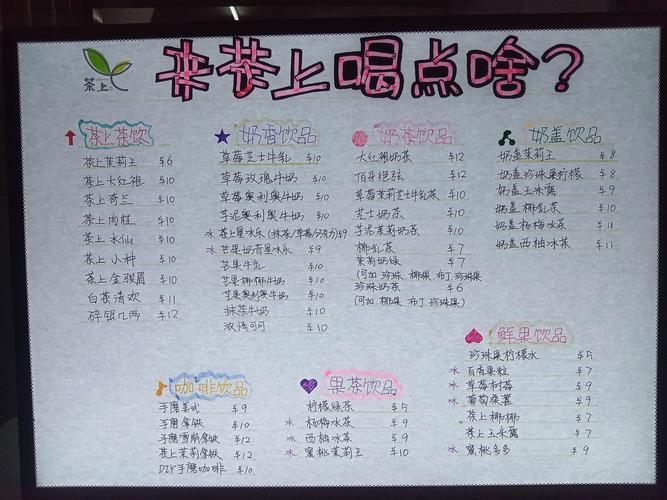 茶上
来茶上喝点啥?
茶上茶饮
茶上茉莉王 ¥6
茶上大红袍 ¥10
茶上奇兰 ¥10
茶上肉桂 ¥10
茶上水仙 ¥10
茶上小种 ¥10
茶上金骏眉 ¥10
白茶清欢 ¥11
碎银几两 ¥12
奶香饮品
草莓芝士牛乳 ¥10
草莓玫瑰牛奶 ¥10
草莓奥利奥牛奶 ¥10
芋泥奥利奥牛奶 ¥10
冰 茶上星冰乐(抹茶/草莓/巧克力) ¥9
冰 芒果奶香星冰乐 ¥9
芒果牛乳 ¥10
芒果椰椰牛奶 ¥10
芒果奥利奥牛奶 ¥10
抹茶牛奶 ¥10
浓情可可 ¥10
奶茶饮品
大红袍奶茶 ¥12
百年绝弦 ¥12
草莓茉莉芝士牛乳茶 ¥12
芝士奶茶 ¥10
芋泥茉莉奶茶 ¥10
椰乳茶 ¥7
茉莉奶绿 ¥7
(可加 珍珠 椰果 布丁 珍珠果)
珍珠奶茶 ¥6
(可加 椰果 布丁 珍珠果)
奶盖饮品
奶盖茉莉王 ¥8
奶盖珍珠果柠檬 ¥8
奶盖玉米露 ¥9
奶盖椰乳茶 ¥10
奶盖杨梅冰茶 ¥11
奶盖西柚冰茶 ¥11
咖啡饮品
手磨美式 ¥9
手磨拿铁 ¥10
手磨雪顶拿铁 ¥12
茶上茉莉拿铁 ¥12
DIY手磨咖啡 ¥10
果茶饮品
柠檬绿茶 ¥5
冰 杨梅冰茶 ¥10
冰 西柚冰茶 ¥10
冰 蜜桃茉莉王 ¥10
鲜果饮品
珍珠果柠檬水 ¥5
冰 百香果粒 ¥7
冰 草莓树莓 ¥9
冰 葡萄桑葚 ¥9
茶上椰椰 ¥7
茶上玉米露 ¥7
冰 蜜桃多多 ¥9